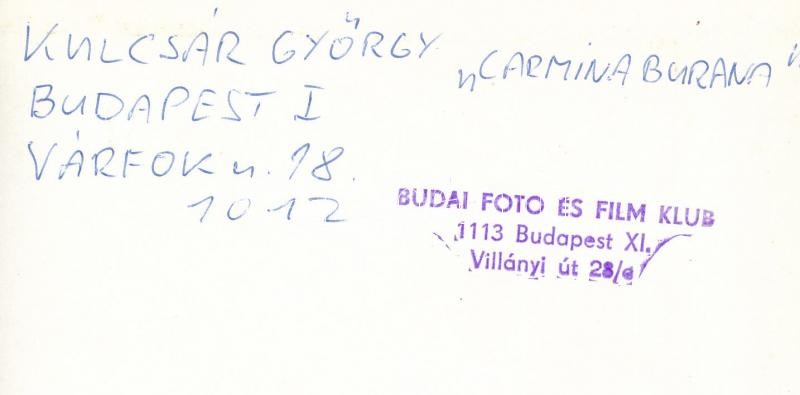 KULCSÁR GYŐRGY
„CARMINA BURANA"
BUDAPEST I
VÁRFOK u. 18.
1012
BUDAI FOTO ÉS FILM KLUB
1113 Budapest XI.
Villányi út 28/e